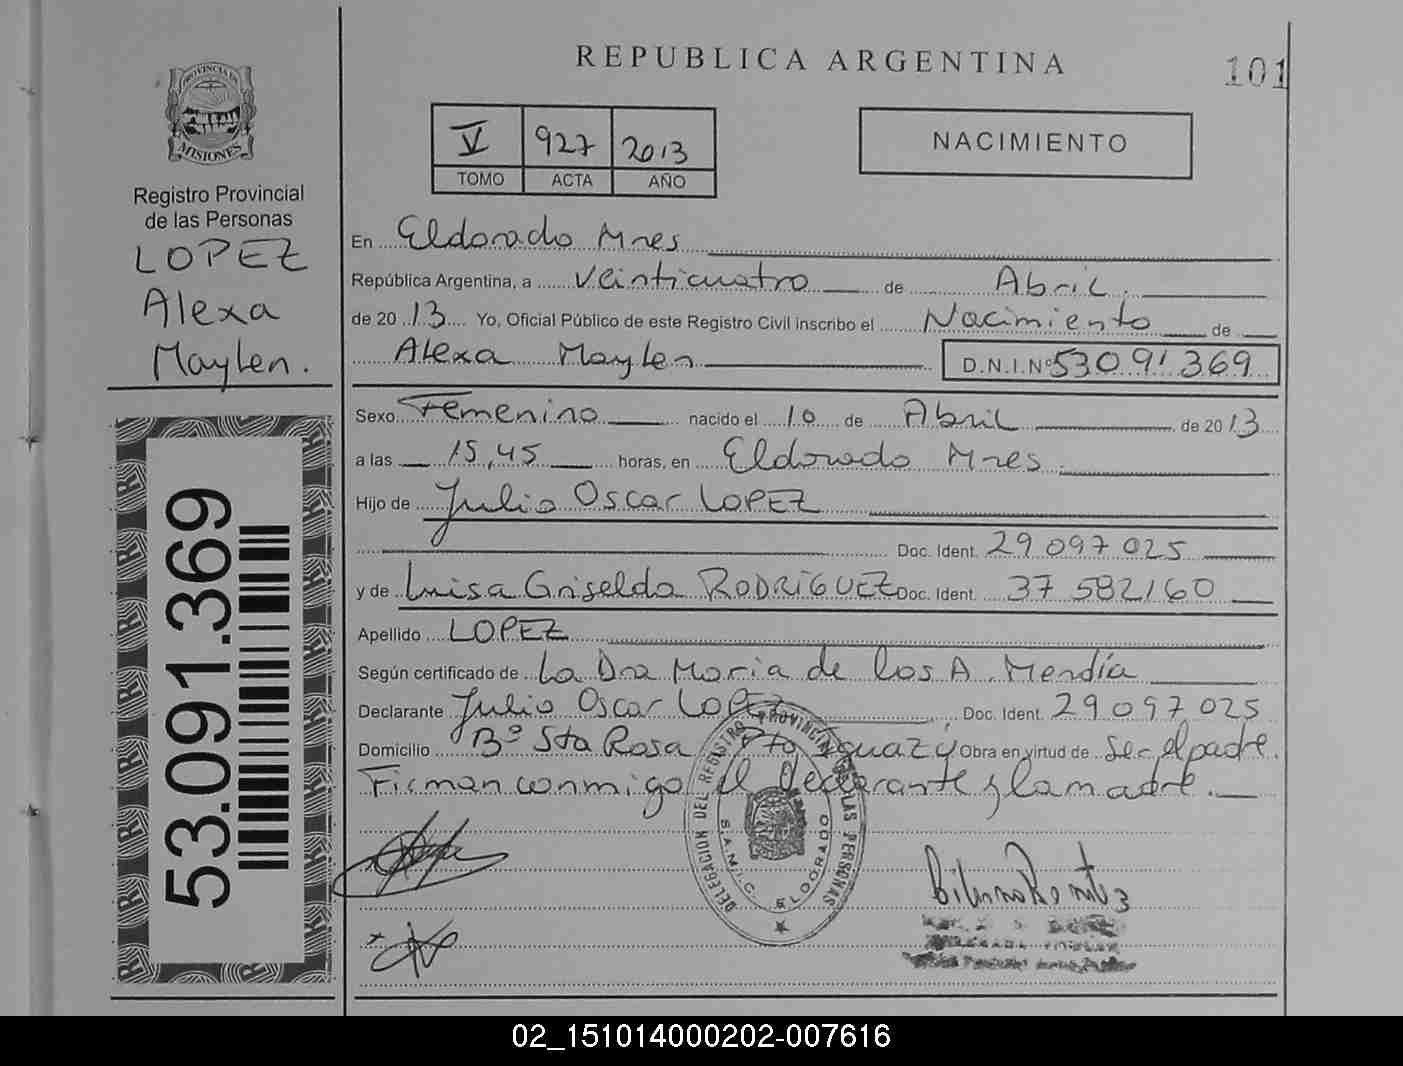 REPUBLICA ARGENTINA
101
PROVINCIA DE
MISIONES
Registro Provincial
de las Personas
LOPEZ
Alexa
Maylen.
53.091.369
V 927 2013
TOMO ACTA AÑO
NACIMIENTO
En Eldorado Mnes
República Argentina, a veinticuatro de Abril.
de 2013 Yo, Oficial Público de este Registro Civil inscribo el Nacimiento de
Alexa Maylen D.N.I.Nº 53091369
Sexo Femenino nacido el 10 de Abril de 2013
a las 15,45 horas, en Eldorado Mnes
Hijo de Julio Oscar LOPEZ
Doc. Ident. 29 097 025
y de Luisa Griselda RODRÍGUEZ Doc. Ident. 37 582160
Apellido LOPEZ
Según certificado de La Dra Maria de los A. Mendía
Declarante Julio Oscar LOPEZ Doc. Ident. 29 097 025
Domicilio Bº Sta Rosa Pto Iguazý Obra en virtud de Ser el padre.
Firman conmigo el Declarante y la madre.
DELEGACION DEL REGISTRO PROVINCIAL DE LAS PERSONAS
ELDORADO
02_151014000202-007616